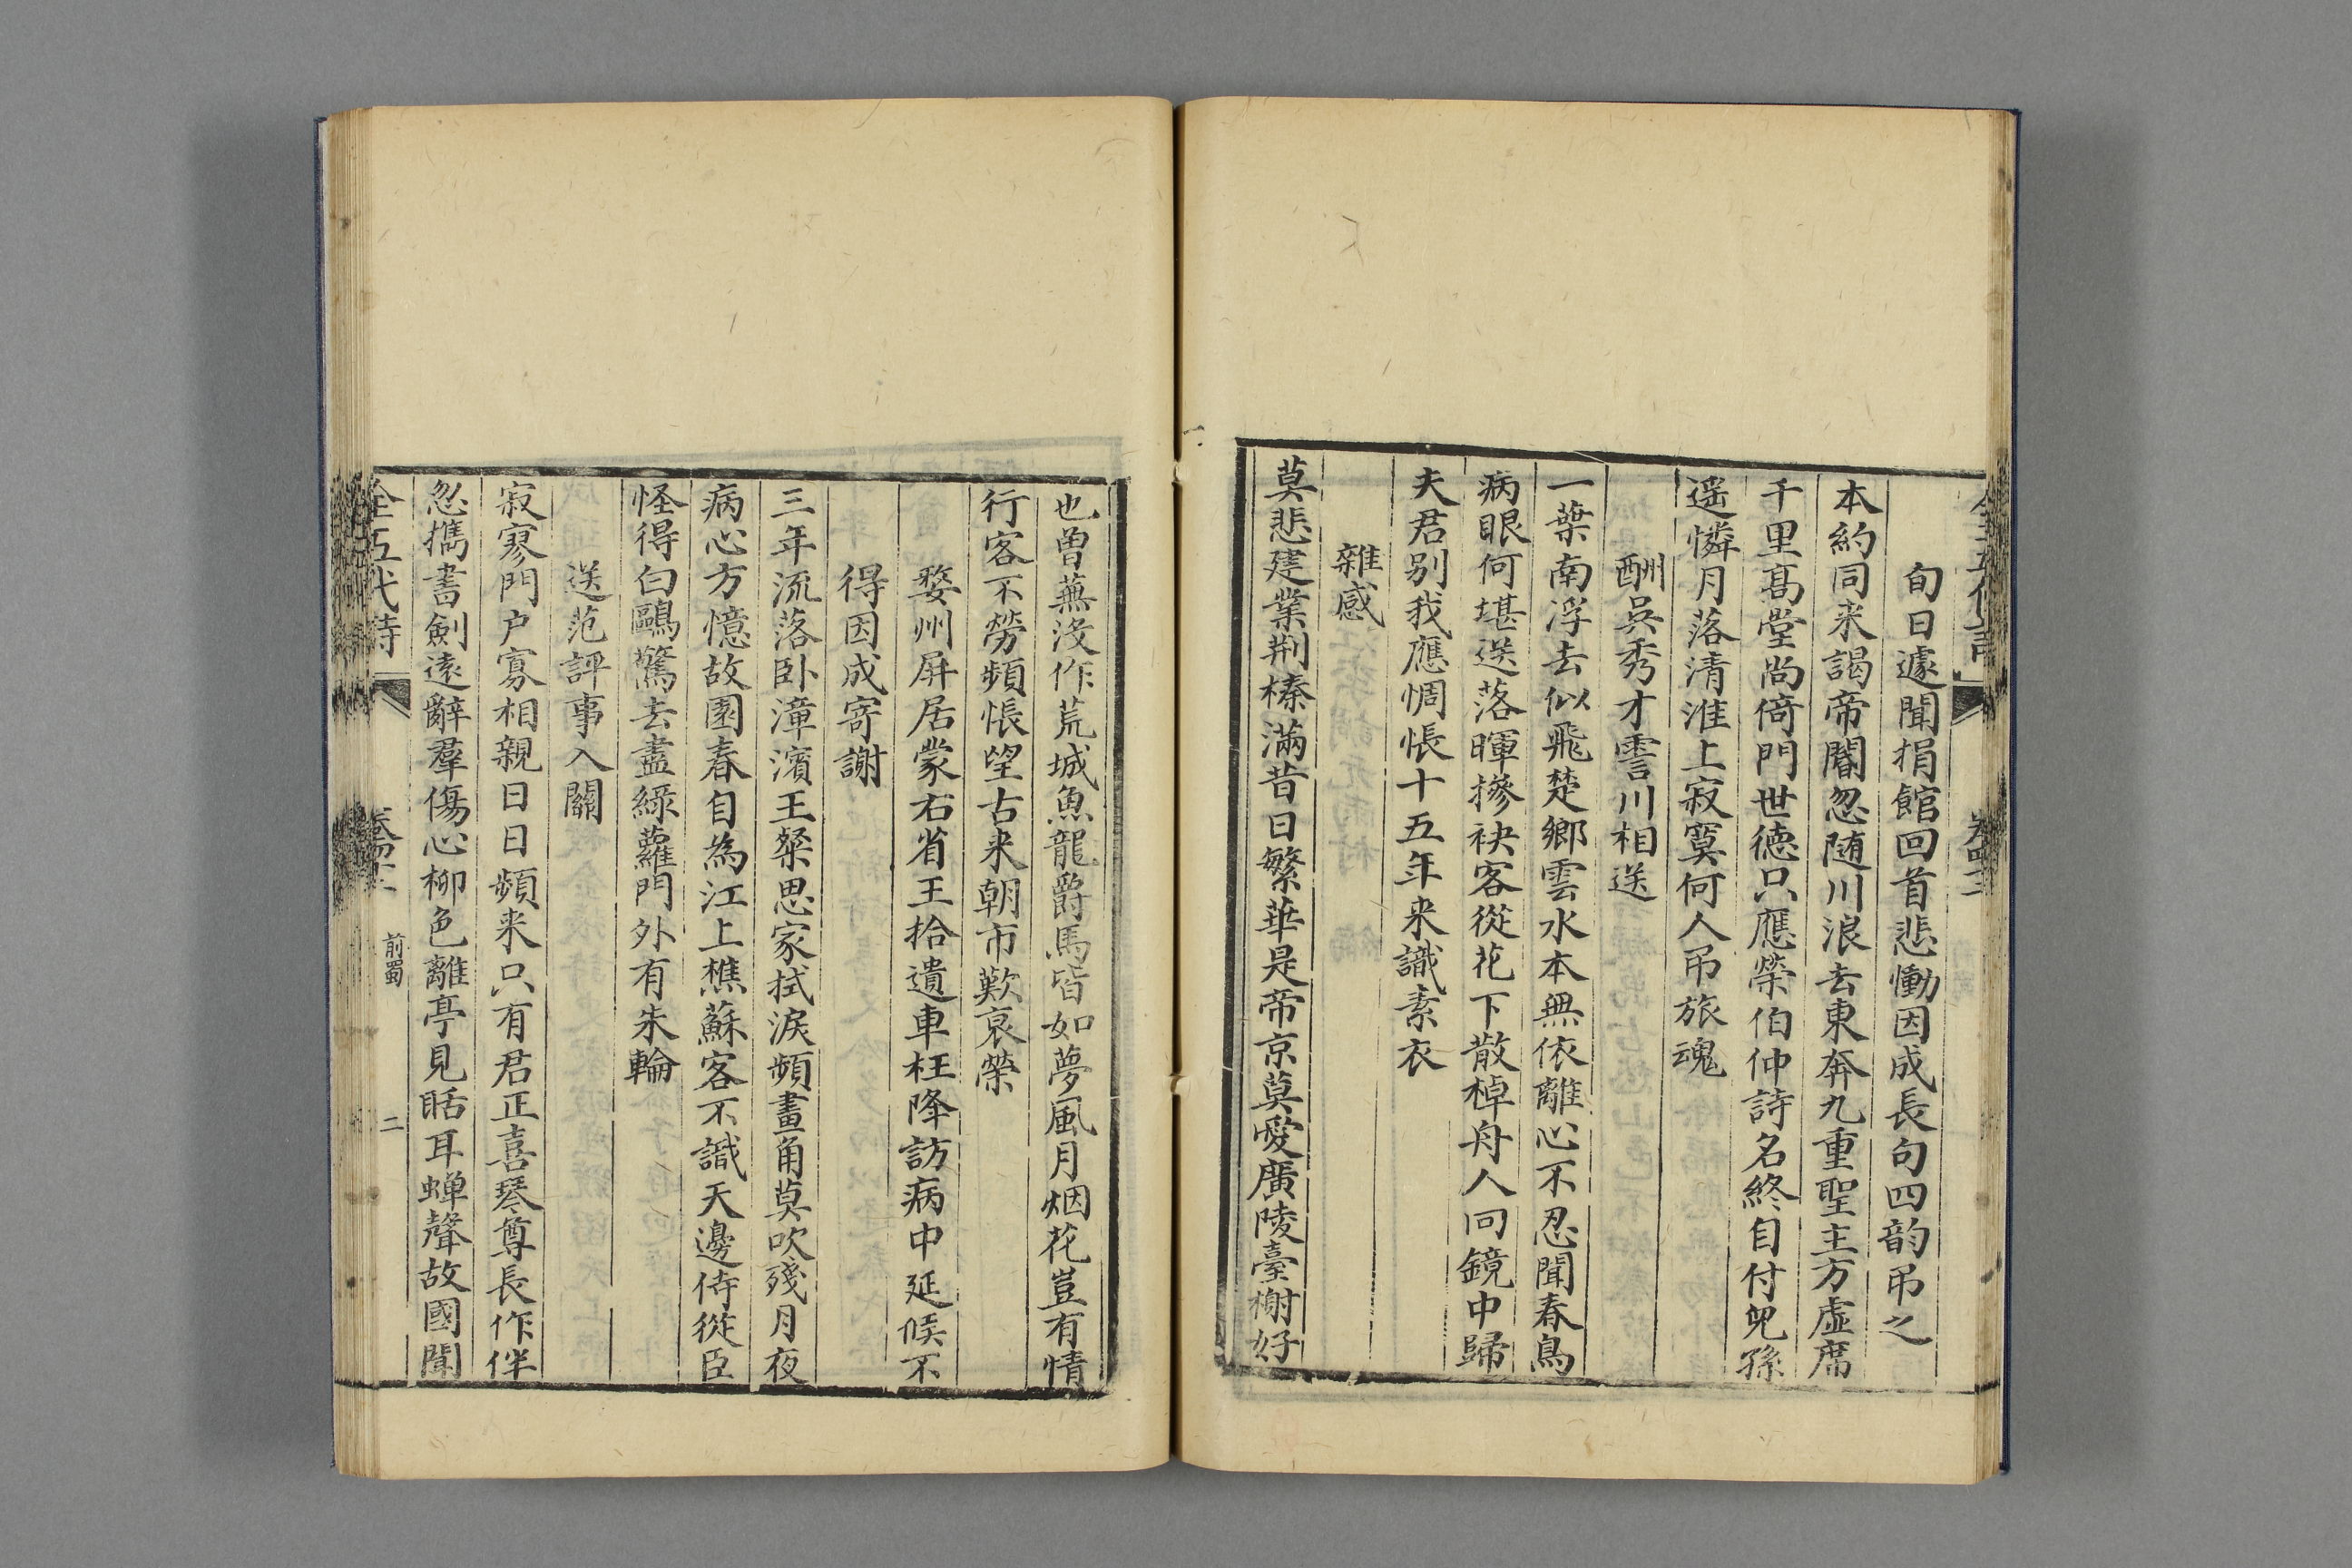 旬日遽聞捐館回首悲慟因成長句四韵吊之
本約同来謁帝閽忽随川浪去東奔九重聖主方虛席
千里髙堂尚倚門世德只應榮伯仲詩名終自付兒孫
遥憐月落清淮上寂寞何人吊旅魂
酬吳秀才霅川相送
一葉南浮去似飛楚鄉雲水本無依離心不忍聞春鳥
病眼何堪送落暉摻袂客從花下散棹舟人向鏡中歸
夫君别我應惆悵十五年来識素衣
雜感
莫悲建業荆榛滿昔日繁華是帝京莫愛廣陵臺榭好
也曾蕪沒作荒城魚龍爵馬皆如夢風月烟花豈有情
行客不勞頻悵望古来朝市歎哀榮
婺州屏居蒙右省王拾遺車枉降訪病中延候不
得因成寄謝
三年流落卧漳濱王粲思家拭淚頻畫角莫吹殘月夜
病心方憶故園春自為江上樵蘇客不識天邊侍從臣
怪得白鷗驚去盡綠蘿門外有朱輪
送范評事入關
寂寥門户寡相親日日頻来只有君正喜琴尊長作伴
忽攜書劍遠辭羣傷心柳色離亭見聒耳蟬聲故國聞
全五代詩 前蜀 二